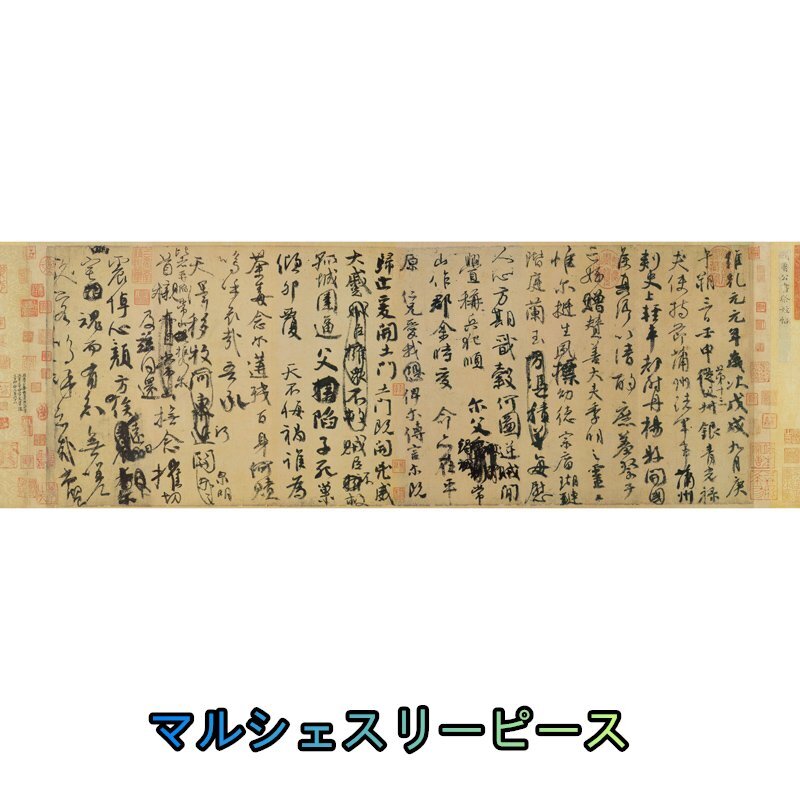 維乾元元年歲次戊戌九月庚
午朔三日壬申第十三叔銀青光祿
夫使持節蒲州諸軍事蒲州
刺史上輕車都尉丹楊縣開國
侯真卿以清酌庶羞祭于
亡姪贈贊善大夫季明之靈曰
惟爾挺生夙標幼德宗廟瑚璉
階庭蘭玉方憑積善每慰
人心方期戩穀何圖逆賊閒
釁稱兵犯順爾父竭誠常
山作郡余時受命亦在平
原仁兄愛我俾爾傳言爾既
歸止爰開土門土門既開凶威
大蹙賊臣不救
孤城圍逼父陷子死巢
傾卵覆天不悔禍誰為
荼毒念爾遘殘百身何贖
嗚呼哀哉吾承
天澤移牧河關泉明
比者再陷常山攜爾
首櫬及茲同還撫念摧切
震悼心顏方俟遠日
宅魂而有知無嗟
久客嗚呼哀哉尚饗
マルシェスリーピース